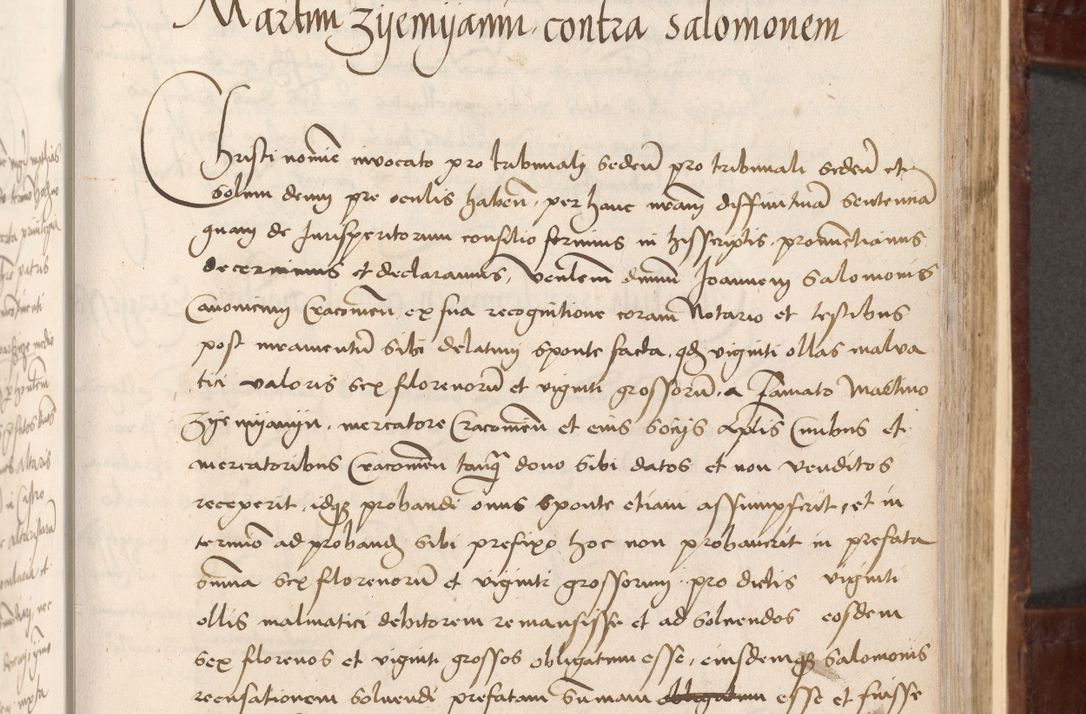 Martini Zyemyanin contra Salomonem
Christi nomie invocato pro tribunali seden pro tribunali seden et
solum deum pre oculis haben, per hanc nram diffinitivam sentenciam
quam de Jurisperitorum consilio ferimus in his scriptis, pronunctiamus
decernimus et declaramus, venlem dnum Joannem Salomonis
Canonicum Cracovien ex sua recognitione coram Notario et testibus
post iuramentum sibi delatum sponte facta, qd viginti ollas malva
tici valoris sex florenoru et viginti grossoru, a famato Martino
Zyemyanyn, mercatore Cracovien et eius socijs aptis Civibus et
mercatoribus Cracovien tanq dono sibi datos et non venditos
receperit, idq probandi onus sponte etiam assumpserit, et in
termino ad proband sibi prefixo hoc non probaverit in prefata
summa sex florenoru et viginti grossorum pro dictis viginti
ollis malvatici debitorem remansisse et ad solvendos eosdem
sex florenos et viginti grossos obligatum esse, eiusdemq Salomonis
recusationem solvendi prefatam summam obligatum esse et fuisse